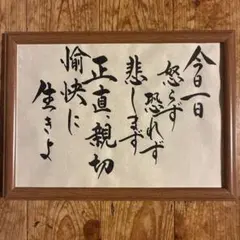 今日一日
怒らず
恐れず
悲しまず
正直、親切
愉快に
生きよ